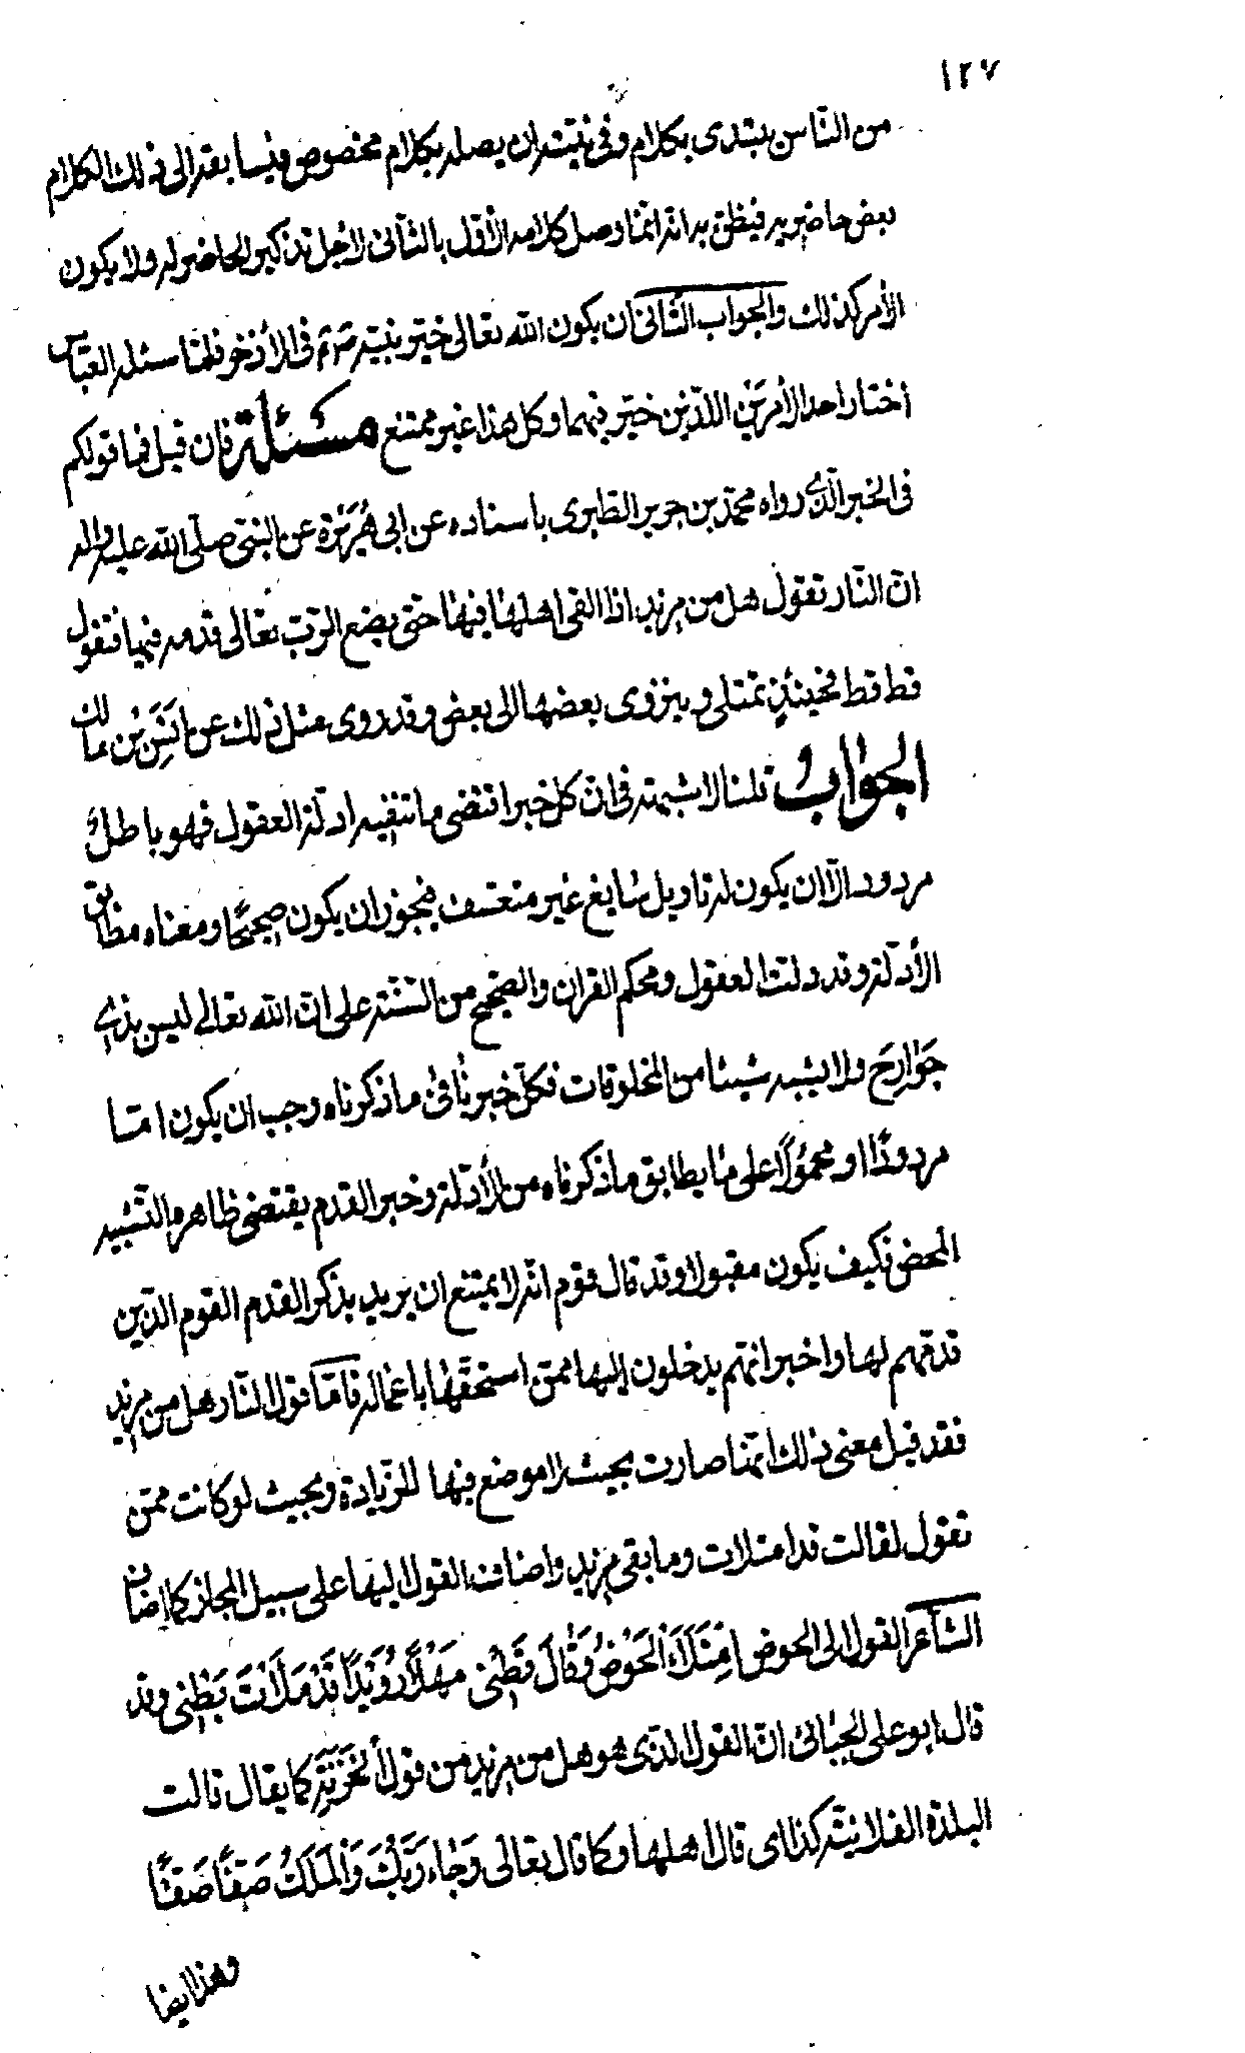 ١٢٧
من النّاس يبتدى بكلام وفى نيّته ان يصله بكلام مخصوص فيسابقه الى ذلك الكلام
بعض حاضريه فيظنّ به انّه انّما وصل كلامه الأوّل بالثّانى لاجل تذكير الحاضر له ولا يكون
الأمر كذلك والجواب الثّانى ان يكون الله تعالى خيّر نبيّه فى الأذخر فلمّا سئله العبّاس
اختار احد الأمرين اللّذين خيّر فيهما وكل هذا غير ممتنع مسئلة فان قيل فما قولكم
فى الخبر الّذى رواه محمّد بن جرير الطّبرى باسناده عن ابى هُرَيرَة عن النّبىّ صلّى الله عليه واله
انّ النّار تقول هل من مزيد اذا القى اهلها فيها حتى يضع الرّب تعالى قدمه فيها فتقول
قط قط فحينئذٍ تمتلى وينزوى بعضها الى بعض وقد روى مثل ذلك عن انَسِ بْن مالك
الجواب قلنا لا شبهة فى انّ كل خبر اقتضى ما تنفيه ادلّة العقول فهو باطلٌ
مردود الّا ان يكون له تاويل سايغ غير متعسف فيجوز ان يكون صحيحًا ومعناه مطابق
الأدلّة وقد دلت العقول ومحكم القران والصّحيح من السّنّة على انّ الله تعالى ليس بذى
جَوارحَ ولا يشبه شيئا من المخلوقات فكلّ خبر نافى ما ذكرناه وجب ان يكون امّا
مردودًا او محمولًا على ما يطابق ما ذكرناه من الأدلّة وخبر القدم يقتضى ظاهره التّشبيه
المحض فكيف يكون مقبولا وقد قال قوم انّه لا يمتنع ان يريد بذكر القدم القوم الّذين
قدّمهم لها واخبر انّهم يدخلون اليها ممّن استحقّها باعماله فامّا قول النّار هل من مزيد
فقد قيل معنى ذلك انّها صارت بحيث لا موضع فيها للزّيادة وبحيث لو كانت ممّن
تقول لقالت قد امتلات وما بقى مزيد واضاف القول اليها على سبيل المجاز كما اضاف
الشّاعر القول الى الحوض اِمْتَلَأَ الْحَوْضُ وَقالَ قَطْنِى مَهْلًا رُوَيْدًا قَدْ مَلَأْتَ بَطْنِى وقد
قال ابو على الجبّائى انّ القول الّذى هو هل من مزيد من قول الْخَزَنَةِ كما يقال قالت
البلدة الفلانيّة كذا اى قال اهلها وكما قال تعالى وَجٰاءَ رَبُّكَ وَالْمَلَكُ صَفًّا صَفًّا
وهذا ايضا